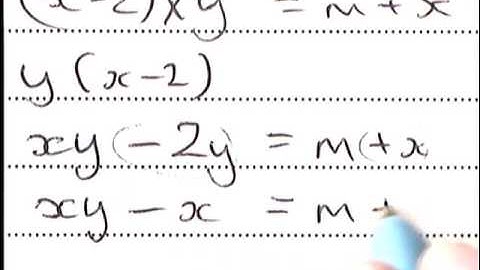 (x-2)xy = m+x
y(x-2)
xy(-2y) = m(+x
xy - x = m +